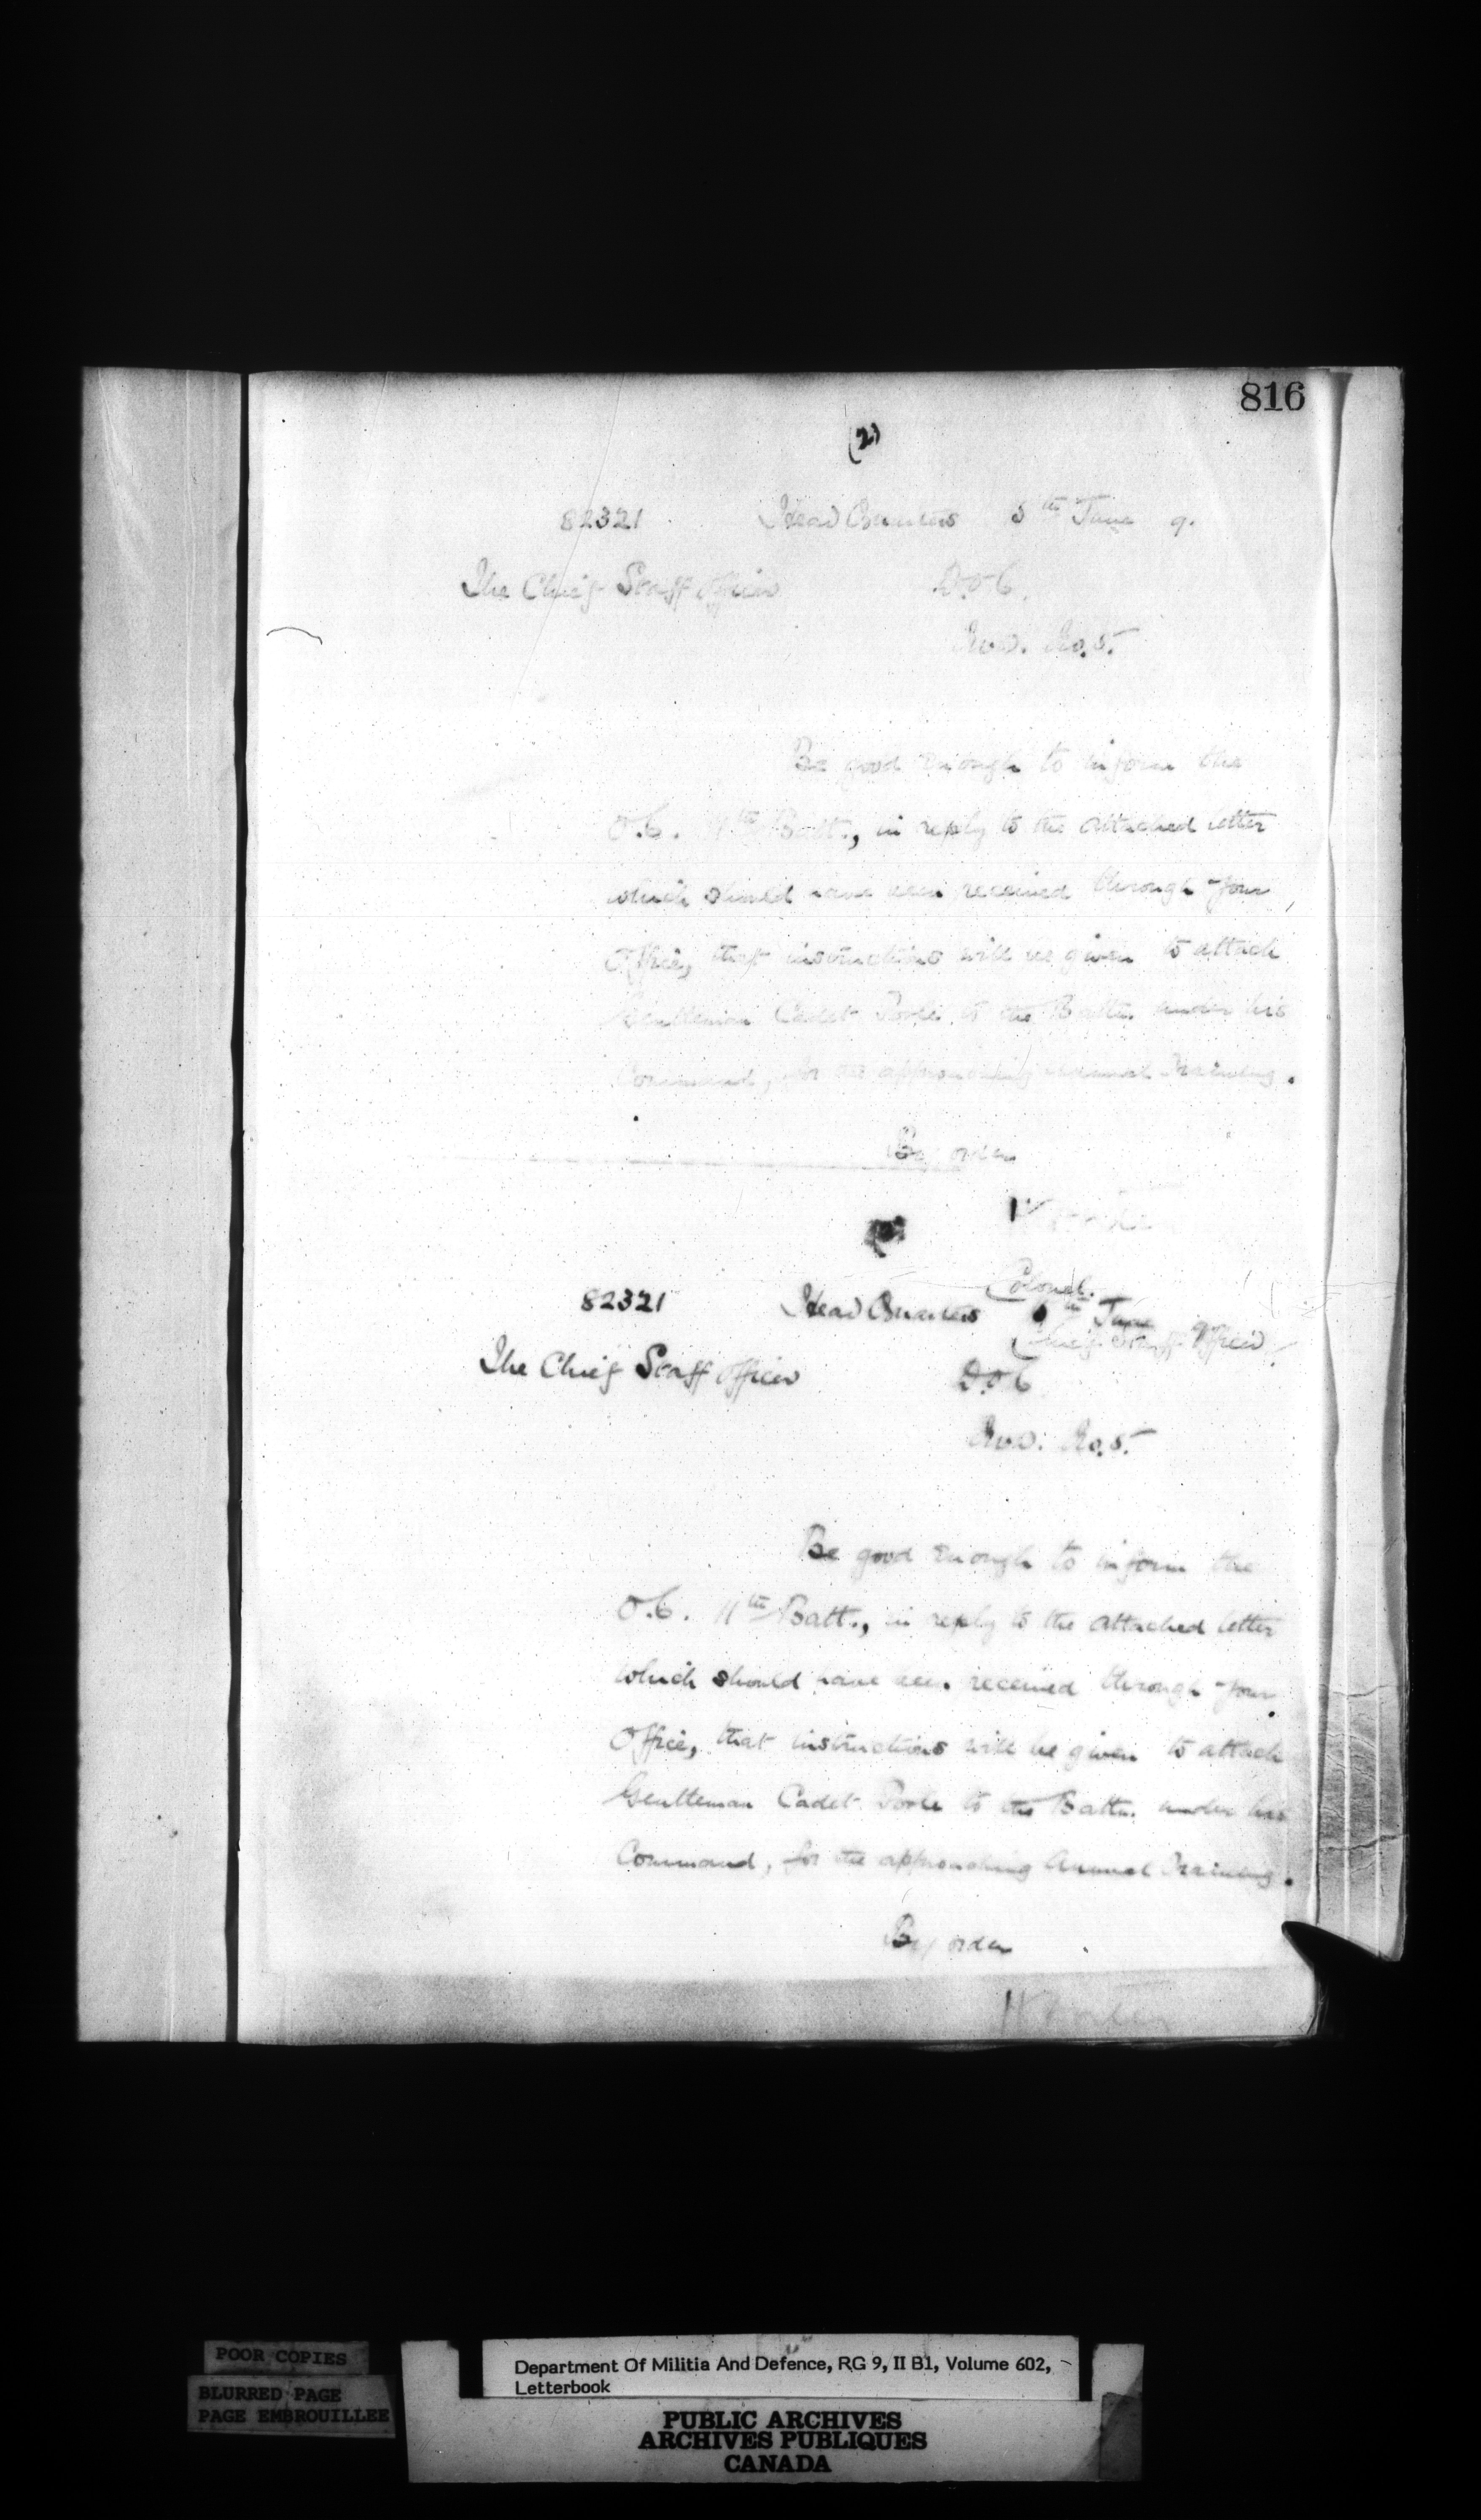 816
(2)
82321 Head Quarters 5th June 9.
The Chief Staff Officer D.O.C.
M.D. No. 5.
Be good enough to inform the
O.C. 11th Batt., in reply to the attached letter
which should have been received through your
Office, that instructions will be given to attach
Gentleman Cadet to the Battn. under his
Command, for the approaching Annual Training.
By order
Colonel.
Chief Staff Officer
82321 Head Quarters th June
The Chief Staff Officer D.O.C
M.D. No. 5.
Be good enough to inform the
O.C. 11th Batt., in reply to the attached letter
which should have been received through your
Office, that instructions will be given to attach
Gentleman Cadet to the Battn. under his
Command, for the approaching Annual Training.
By order
POOR COPIES
BLURRED PAGE
PAGE EMBROUILLEE
Department Of Militia And Defence, RG 9, II B1, Volume 602,
Letterbook
PUBLIC ARCHIVES
ARCHIVES PUBLIQUES
CANADA